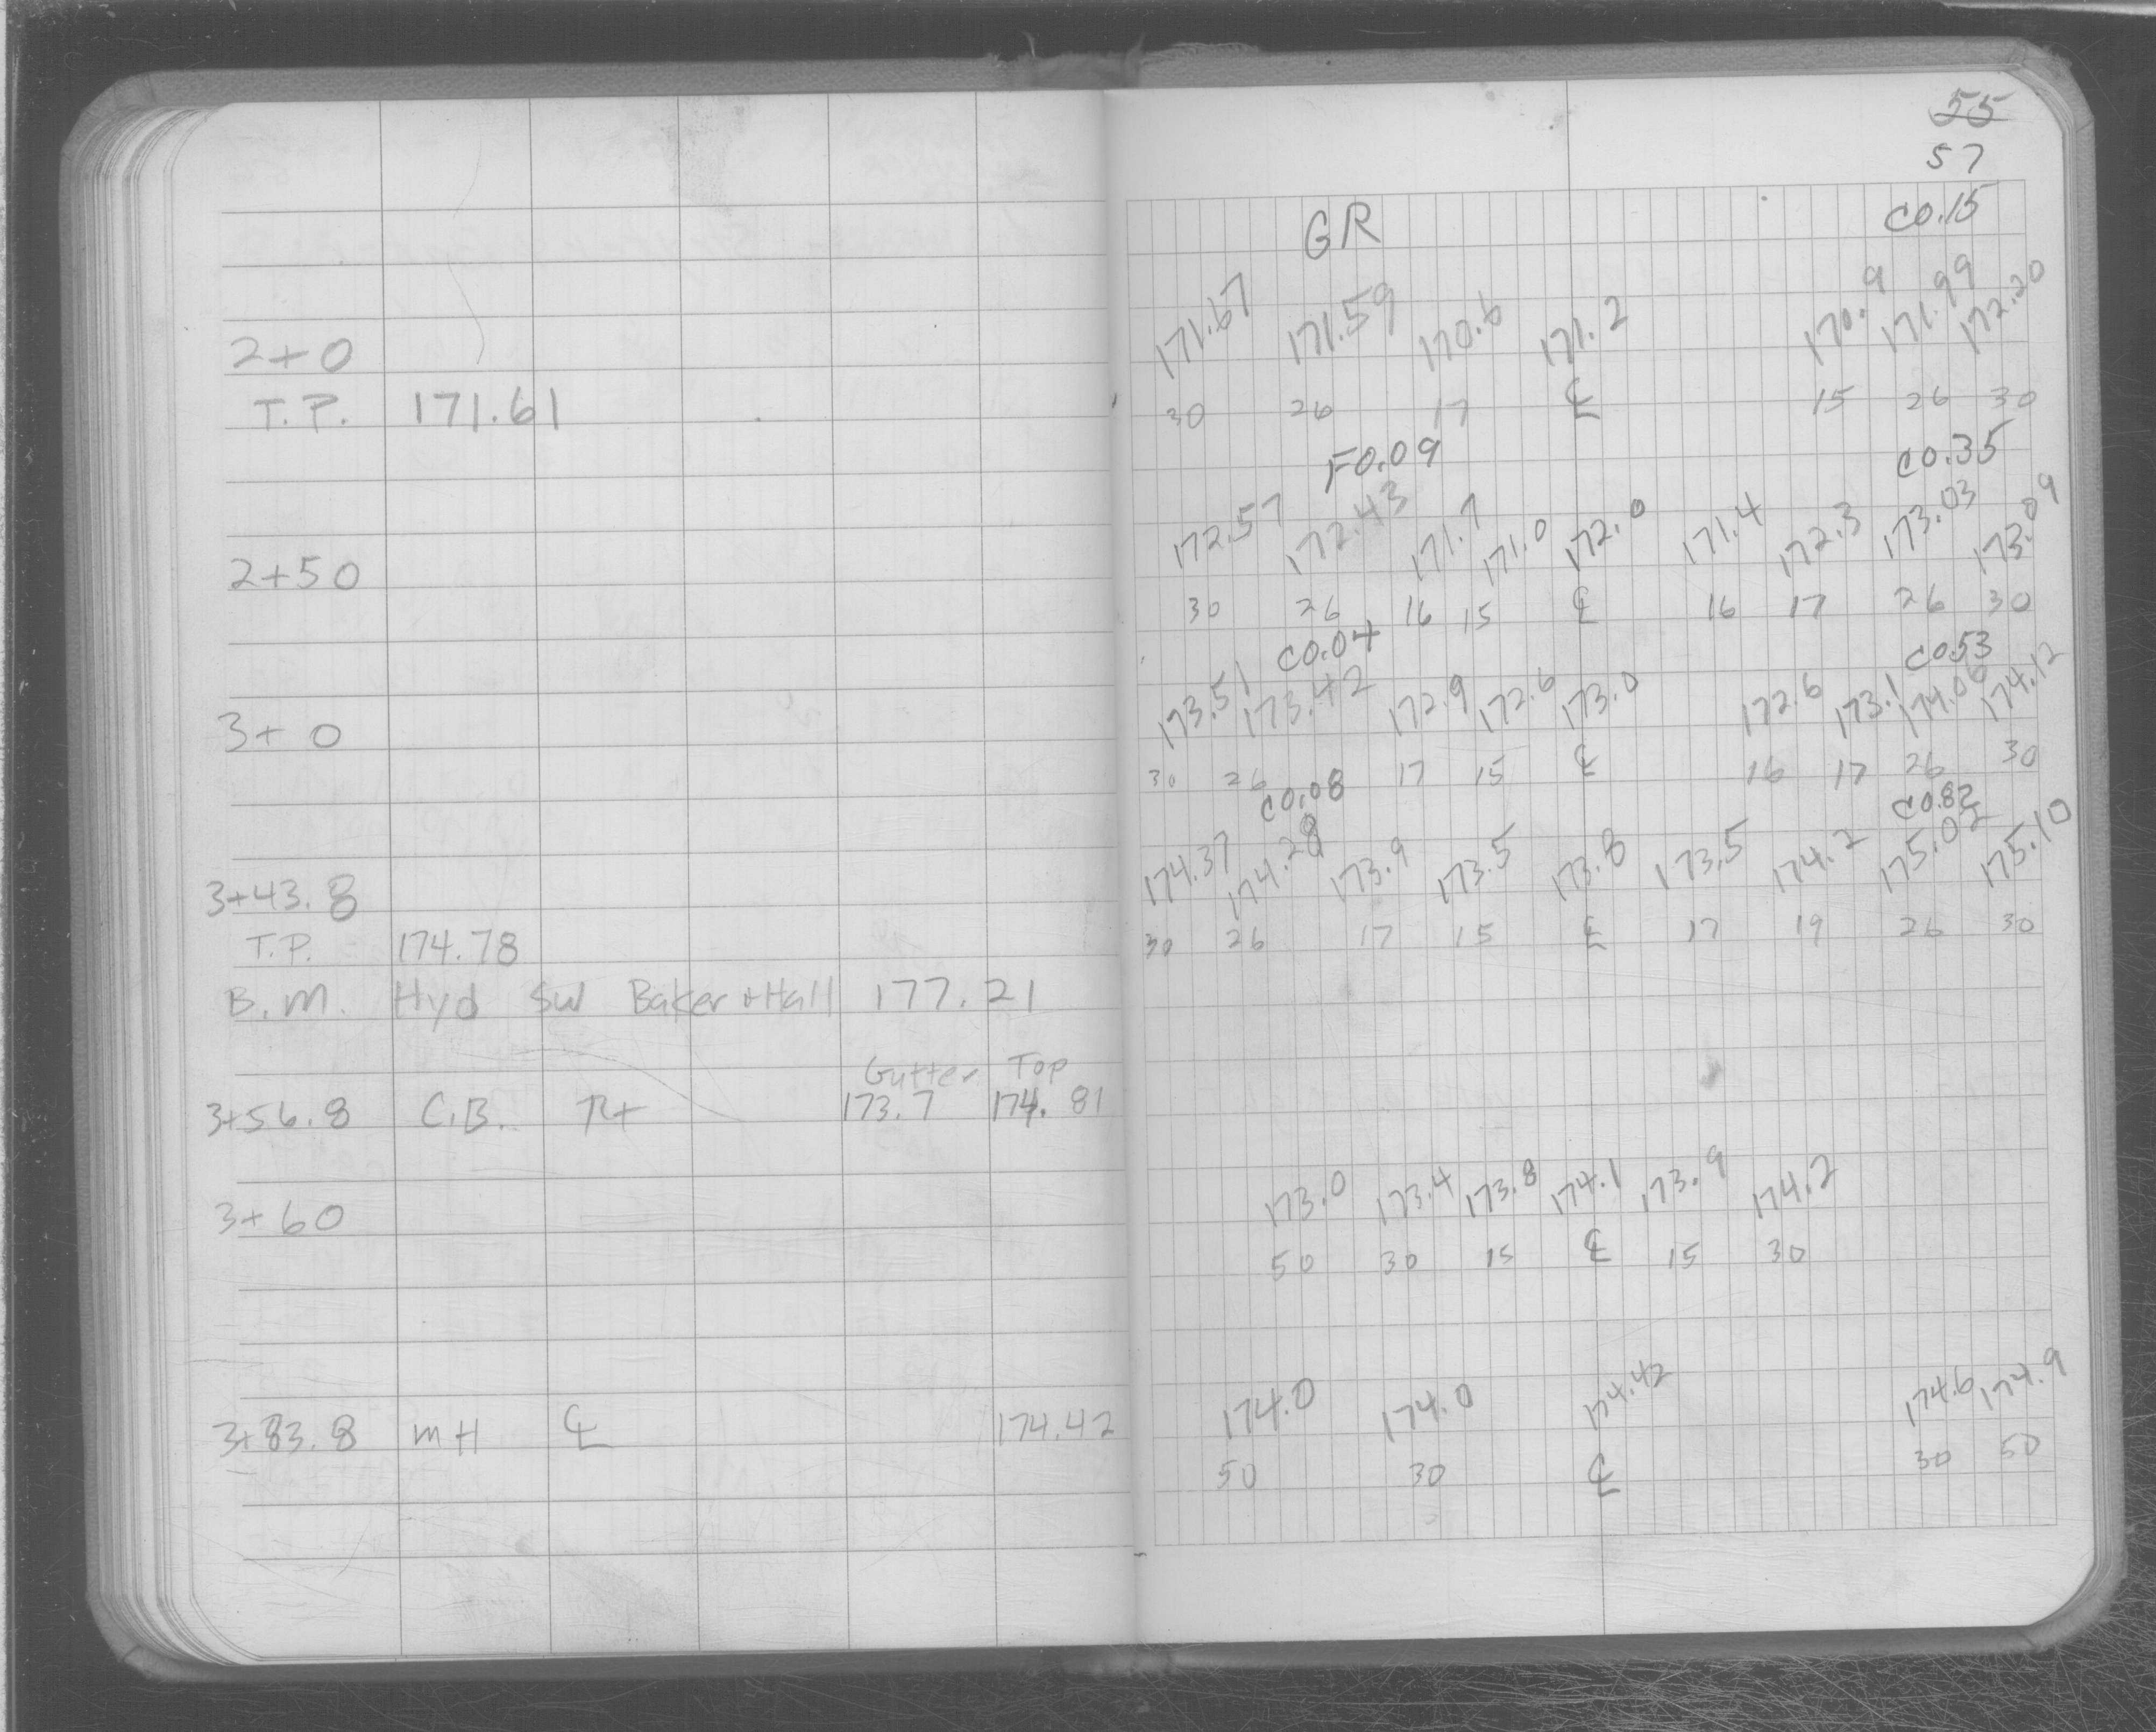 2+0
T.P. 171.61
2+50
3+0
3+43.8
T.P. 174.78
B.M. Hyd SW Baker + Hall 177.21
Gutter Top
3+56.8 C.B. Rt 173.7 174.81
3+60
3+83.8 MH ℄ 174.42
55
57
GR C0.15
171.67 171.59 170.6 171.2 170.9 171.99 172.20
30 26 17 ℄ 15 26 30
F0.09 C0.35
172.57 172.43 171.7 171.0 172.0 171.4 172.3 173.03 173.09
30 26 16 15 ℄ 16 17 26 30
C0.04 C0.53
173.51 173.42 172.9 172.6 173.0 172.6 173.1 174.06 174.12
30 26 17 15 ℄ 16 17 26 30
C0.08 C0.82
174.37 174.28 173.9 173.5 173.8 173.5 174.2 175.02 175.10
30 26 17 15 ℄ 17 19 26 30
173.0 173.4 173.8 174.1 173.9 174.2
50 30 15 ℄ 15 30
174.0 174.0 174.42 174.6 174.9
50 30 ℄ 30 50